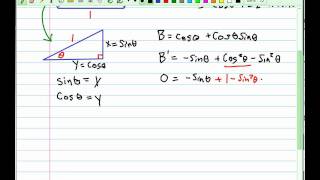 1
1
θ
x=Sinθ
y=Cosθ
Sinθ = x
Cosθ = y
B = Cosθ + CosθSinθ
B' = -Sinθ + Cos²θ - Sin²θ
0 = -Sinθ + 1 - Sin²θ -